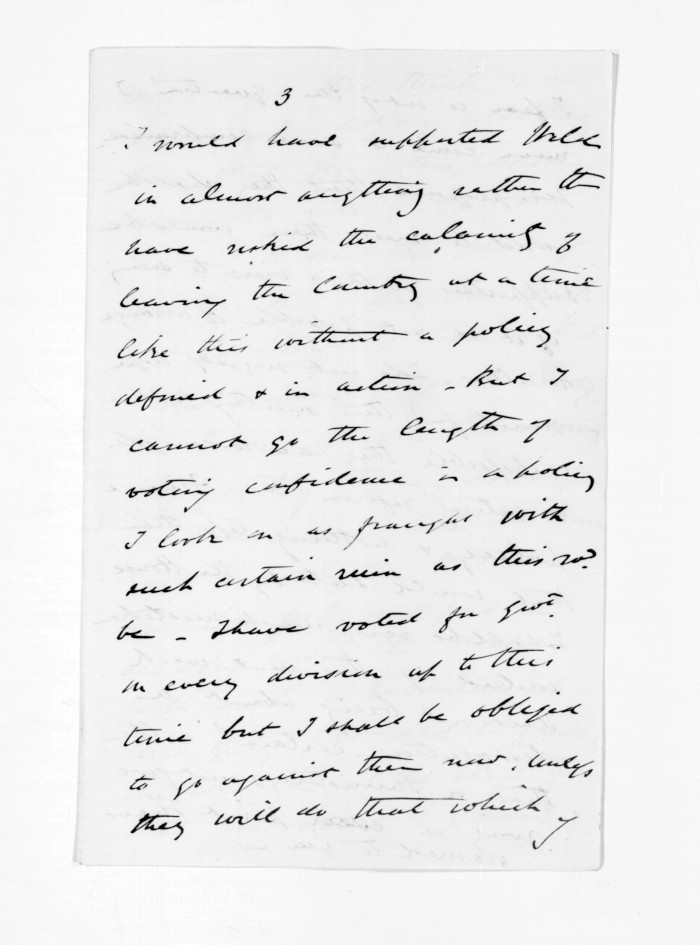 3
I would have supported Weld
in almost anything rather th
have risked the calamity of
leaving the Country at a time
like this without a policy
defined & in action - But I
cannot go the length of
voting confidence in a policy
I look on as fraught with
such certain ruin as this wd.
be - I have voted for govt.
on every division up to this
time but I shall be obliged
to go against them now, unless
they will do that which